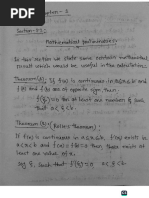 Chapter - 2
Section-2.1:
Mathematical preliminaries
In this section we state some certain mathematical
result which would be useful in the calculation.
Theorem (A): If f(x) is continuous in a≤x≤b and
f(a) and f(b) are of opposite sign then,
f(ξ)=0 for at least one number ξ such
that a<ξ<b.
Theorem (Rolle's Theorem):
If f(x) is continuous in a≤x≤b, f'(x) exists in
a<x<b and f(a)=f(b)=0, then there exists
at least one value of x,
Say ξ, such that f'(ξ)=0, a<ξ<b.